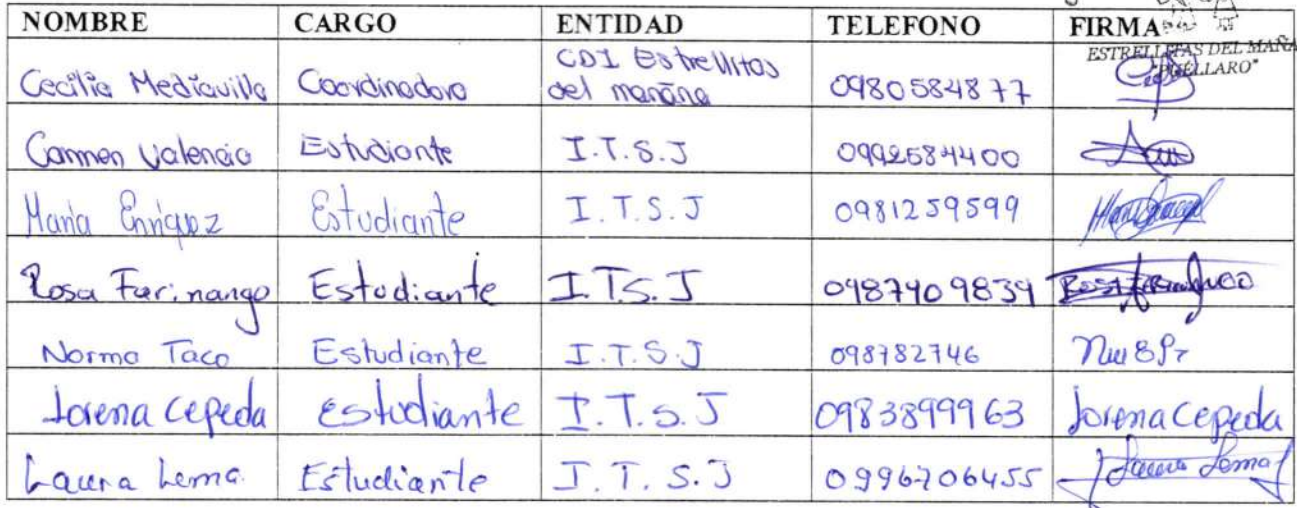 NOMBRE CARGO ENTIDAD TELEFONO FIRMA
ESTRELLITAS DEL MAÑA
"PUÉLLARO"
Cecilia Mediavilla Coordinadora CDI Estrellitas del manãna 0980584877
Carmen Valencia Estudiante I.T.S.J 0992584400
Maria Enriquez Estudiante I.T.S.J 0981259599
Rosa Farinango Estudiante I.T.S.J 0987409839
Norma Taco Estudiante I.T.S.J 098782746
Lorena Cepeda estudiante I.T.S.J 0983899963 Lorena Cepeda
Laura Lema. Estudiante I.T.S.J 0996706455 Laura Lema